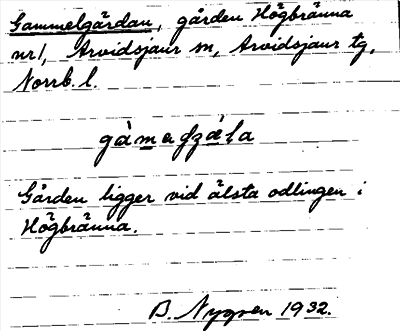 Gammelgårdan, gården Högbränna
nr1, Arvidsjaur sn, Arvidsjaur tg,
Norrb. l.
Gården ligger vid älsta odlingen i
Högbränna.
B. Nygren 1932.